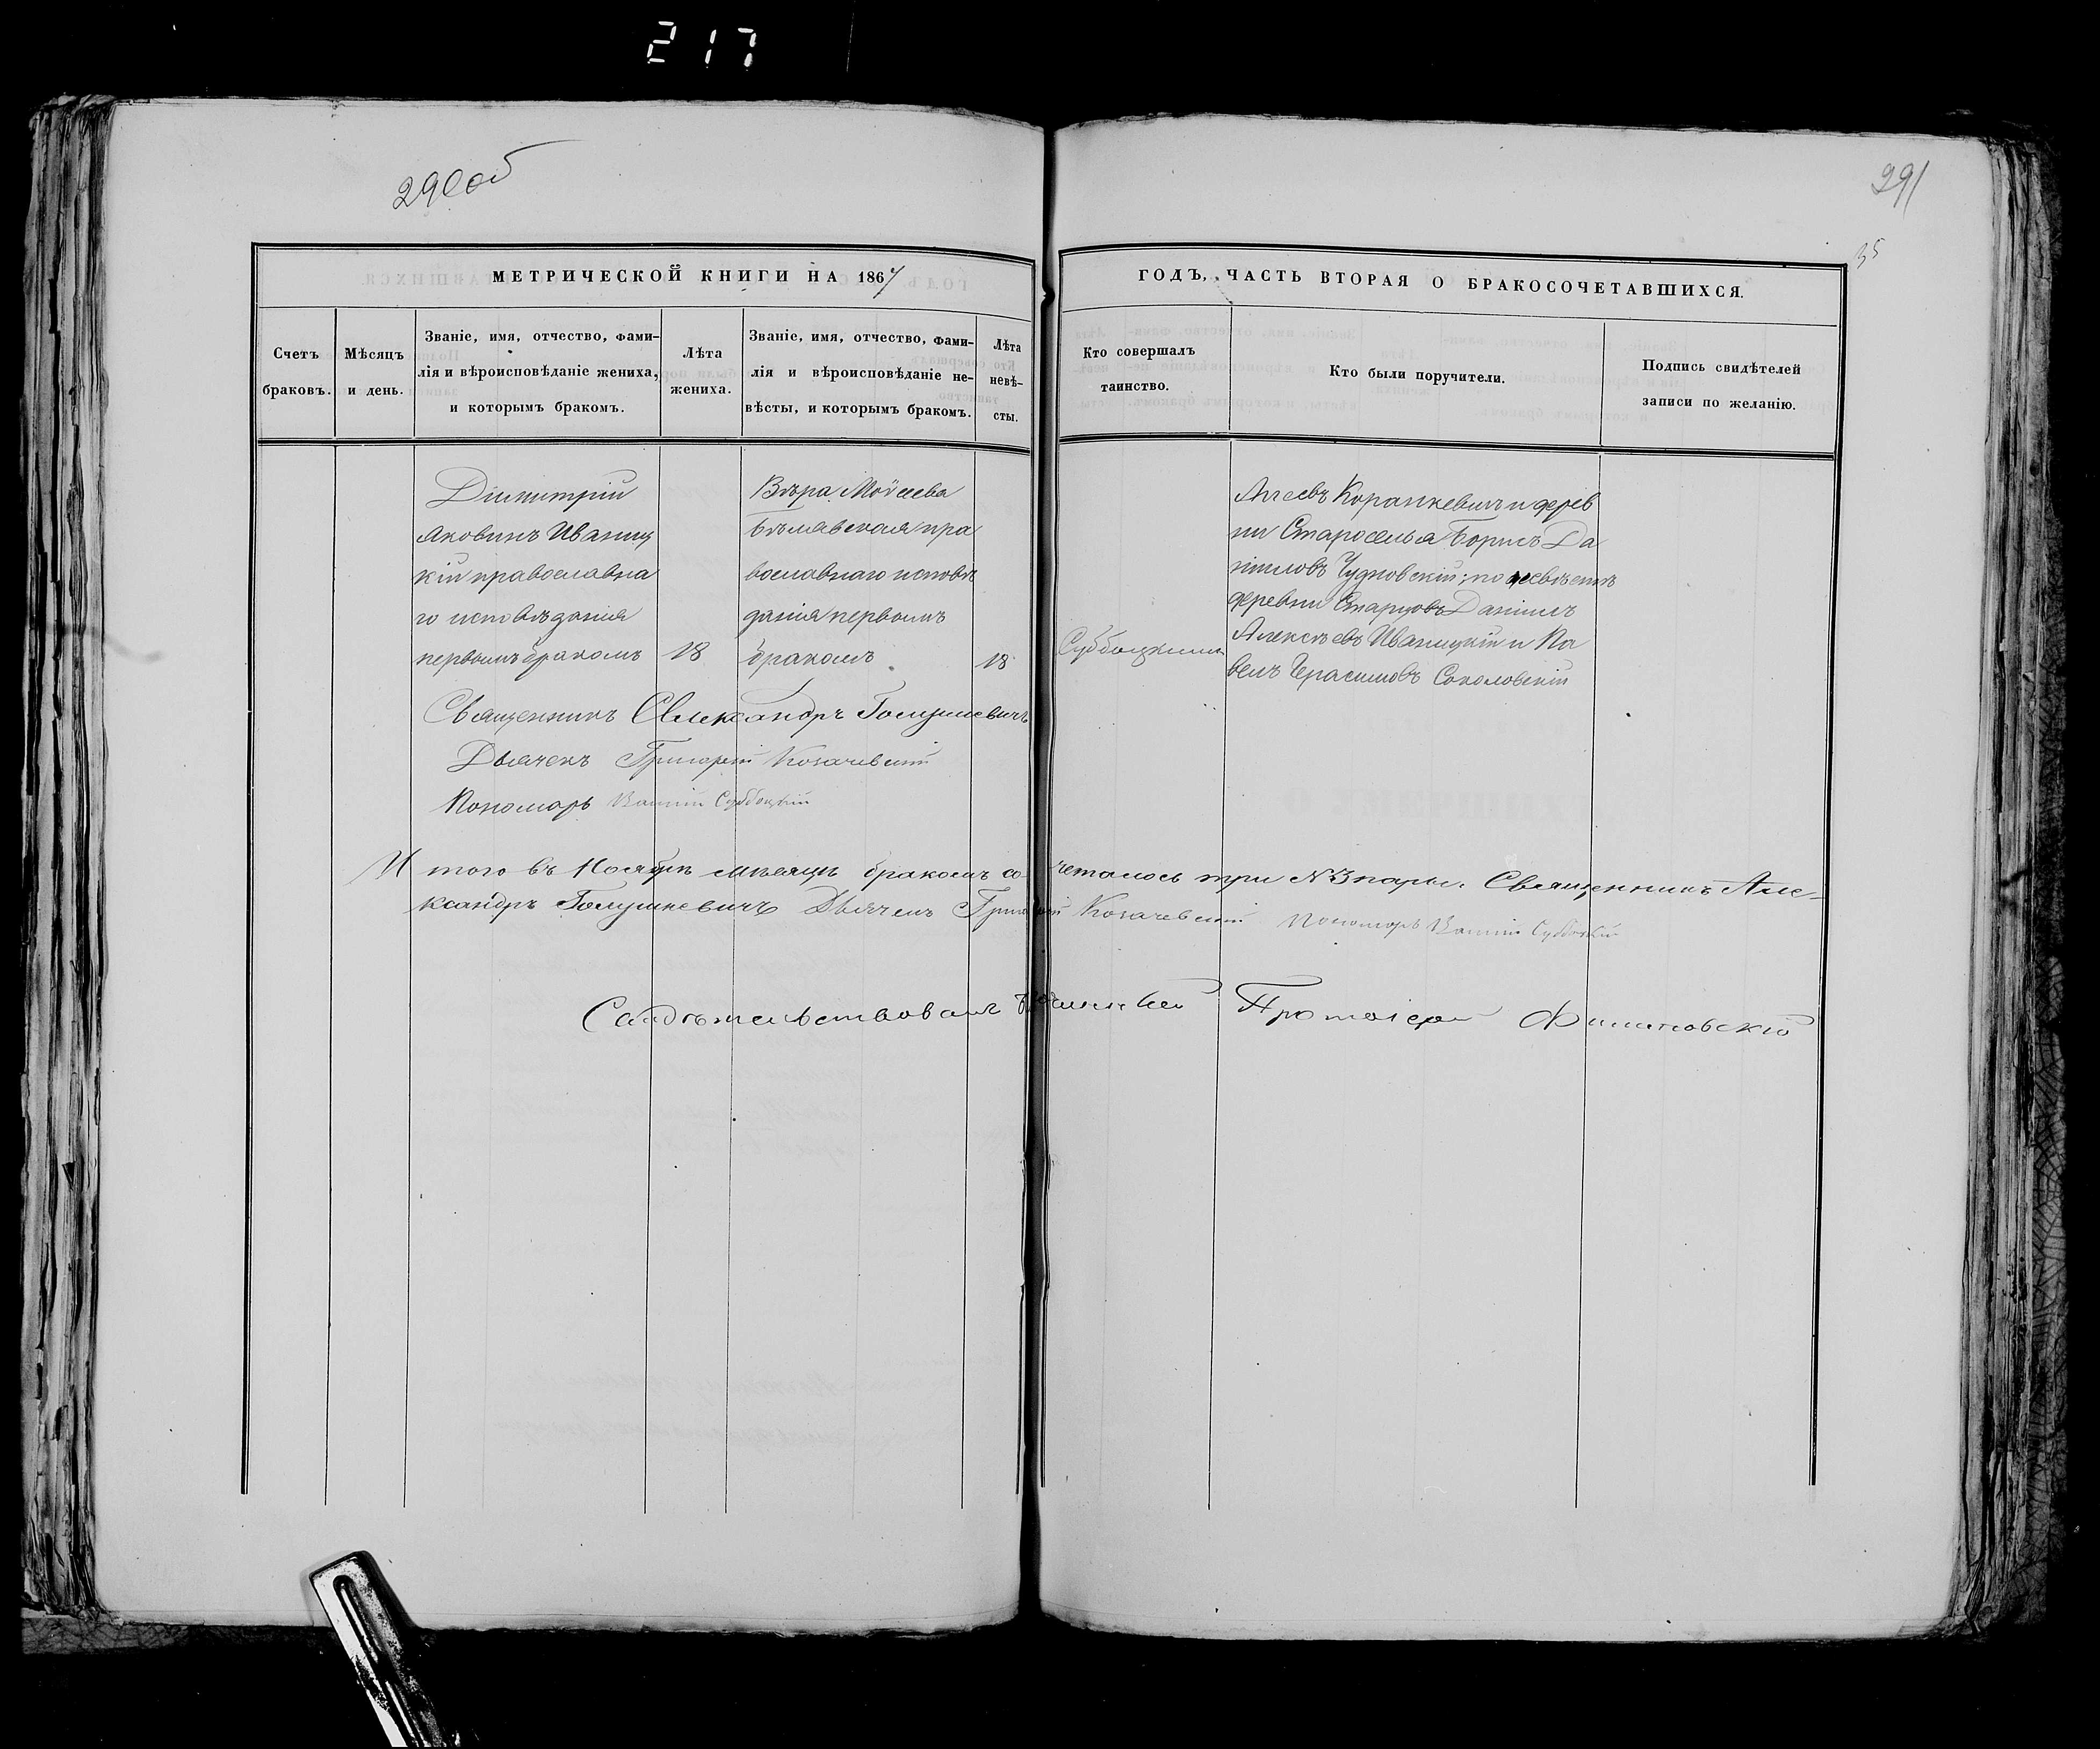 217
290об
291
35
МЕТРИЧЕСКОЙ КНИГИ НА 1867
ГОДЪ, ЧАСТЬ ВТОРАЯ О БРАКОСОЧЕТАВШИХСЯ.
Счетъ браковъ.
Мѣсяцъ и день.
Званіе, имя, отчество, фами-
лія и вѣроисповѣданіе жениха,
и которымъ бракомъ.
Лѣта
жениха.
Званіе, имя, отчество, фами-
лія и вѣроисповѣданіе не-
вѣсты, и которымъ бракомъ.
Лѣта
невѣ-
сты.
Кто совершалъ
таинство.
Кто были поручители.
Подпись свидѣтелей
записи по желанію.
Димитрій
Яковинъ Иваниц
кій православна
го исповѣданія
первымъ бракомъ
18
Вѣра Моѵсеева
Бѣлявская пра
вославнаго исповѣ
данія первымъ
бракомъ
18
Субоцкимъ
Коранкевичъ и дерев
ни Староселья Борисъ Да
ніиловъ Чудновскій; по невѣстѣ
деревни Старцовъ Даніилъ
Алексѣевъ Иваницкій и Па
велъ Герасимовъ Соколовскій
Священникъ Александръ Голушкевичъ
Дьячекъ Григорій Козачевскій
Пономарь Субоцкій
Итого въ Ноябрѣ мѣсяцѣ бракомъ сочеталось три №3 пары. Священникъ Але-
ксандръ Голушкевичъ Дьячекъ Григорій Козачевскій Пономарь Субоцкій
Свидѣтельствовалъ Протоіерей